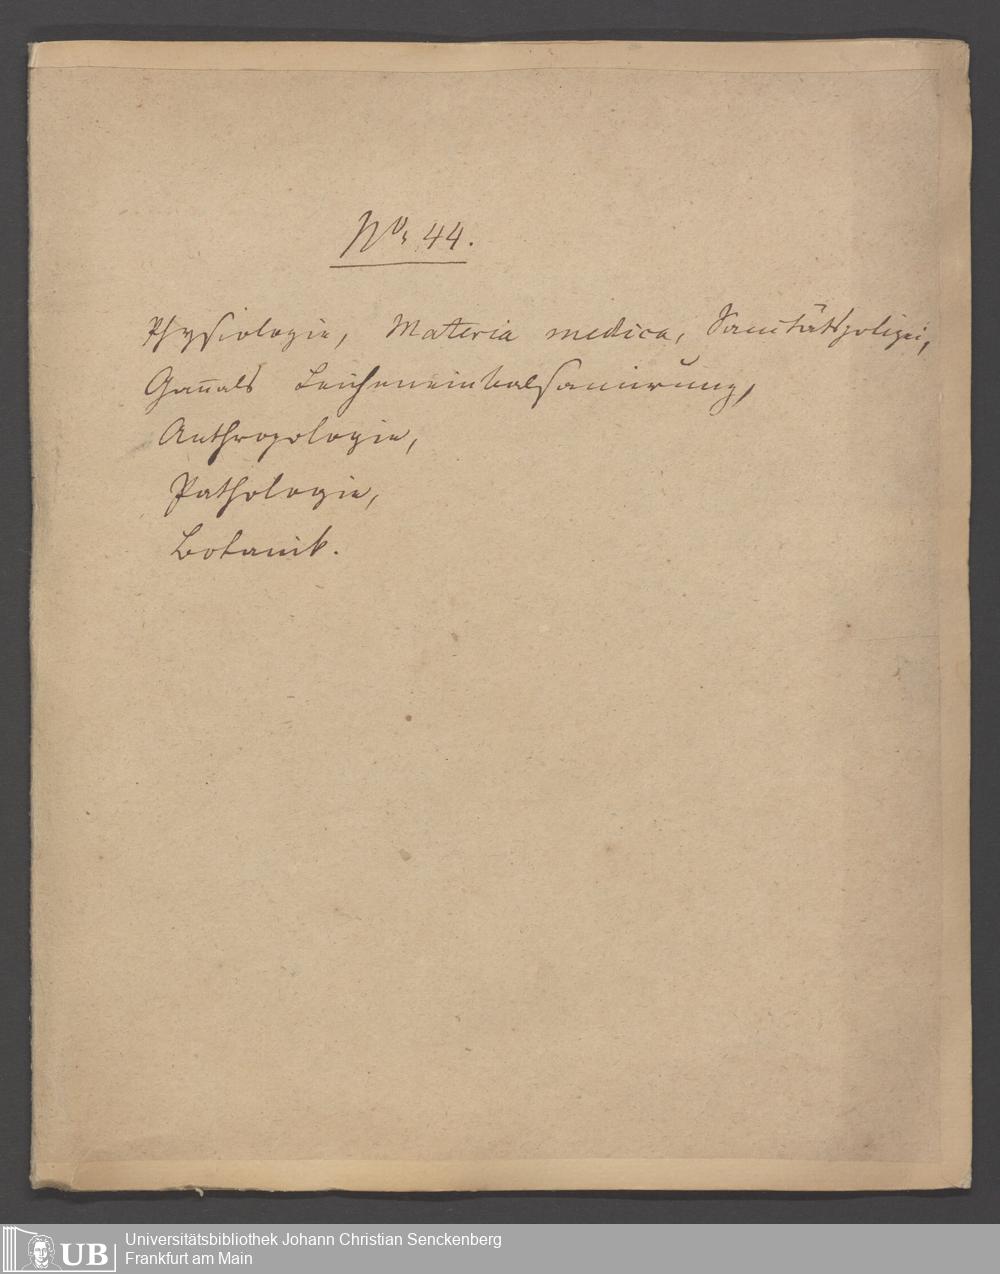 No. 44.
Physiologie, Materia medica, Sanitätspolizei,
Gan̄als Leicheneinbalsamirung,
Anthropologie,
Pathologie,
Botanik.
UB
Universitätsbibliothek Johann Christian Senckenberg
Frankfurt am Main